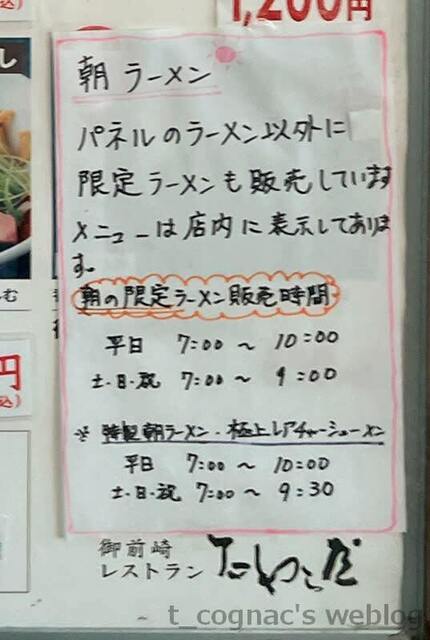 1,200円
朝 ラーメン
パネルのラーメン以外に
限定ラーメンも販売しています
メニューは店内に表示してありま
す。
朝の限定ラーメン販売時間
平日 7:00 〜 10:00
土・日・祝 7:00 〜 9:00
※ 特製朝ラーメン・極上レアチャーシューメン
平日 7:00 〜 10:00
土・日・祝 7:00 〜 9:30
御前崎
レストラン
t_cognac's weblog